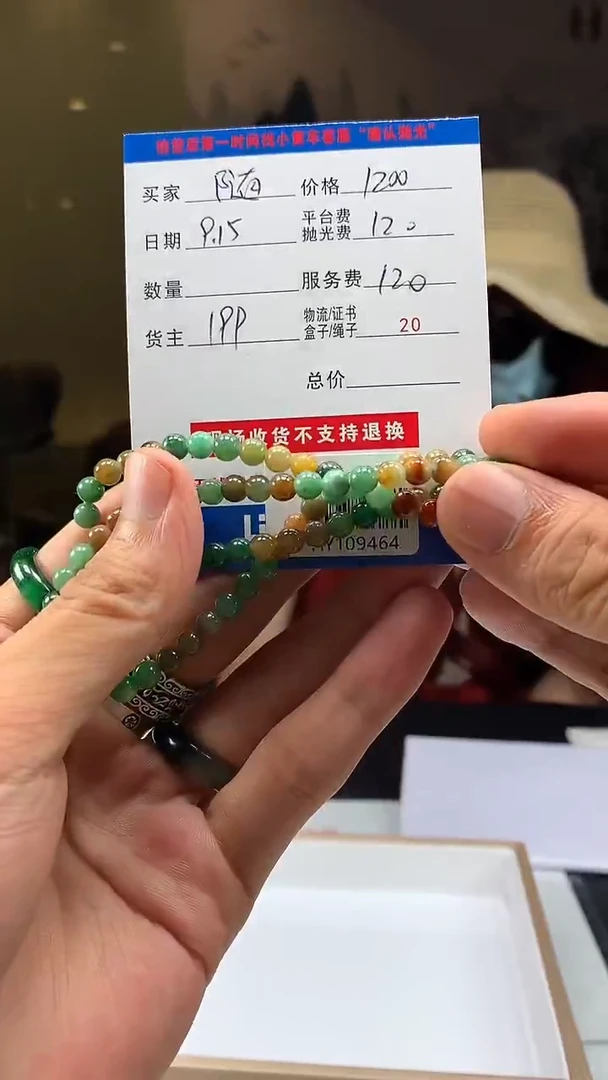 买家 价格 1200
日期 9.15 平台费 抛光费 120
数量 服务费 120
货主 1PP 物流/证书 盒子/绳子 20
总价
现场收货不支持退换
HY109464